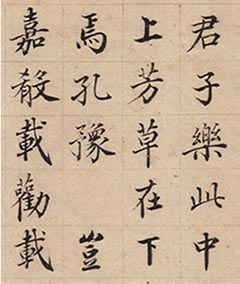 君子樂此中
上芳草在下
焉孔豫 豈
嘉殽載勸載